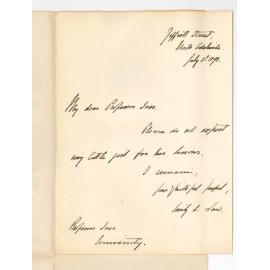 Jeffcott Street,
North Adelaide.
July 2nd 1891.
My dear Professor Ives.
Please do not expect
my little girl for her lessons.
I remain,
Yours faithfully,
Professor Ives
University.